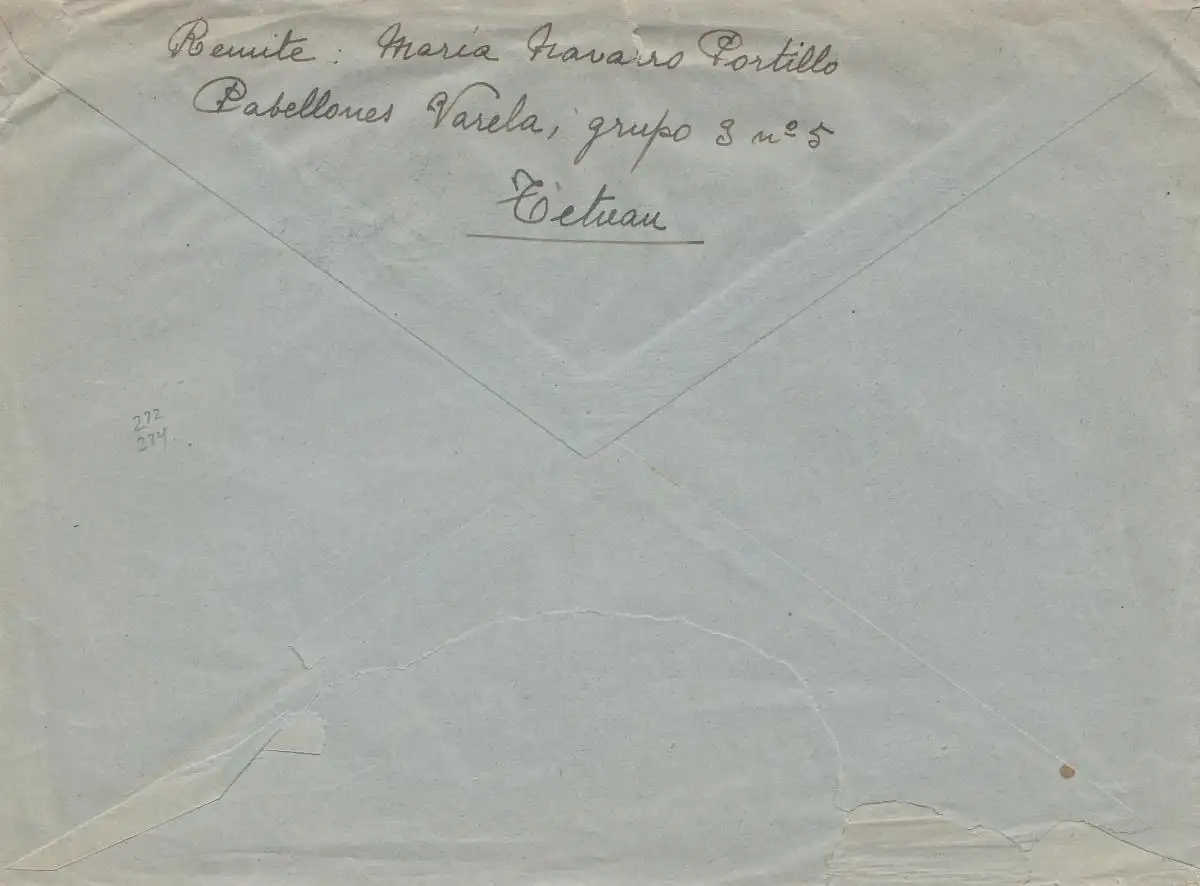 Remite: María Navarro Portillo
Pabellones Varela, grupo 3 nº 5
Tetuan
272
274